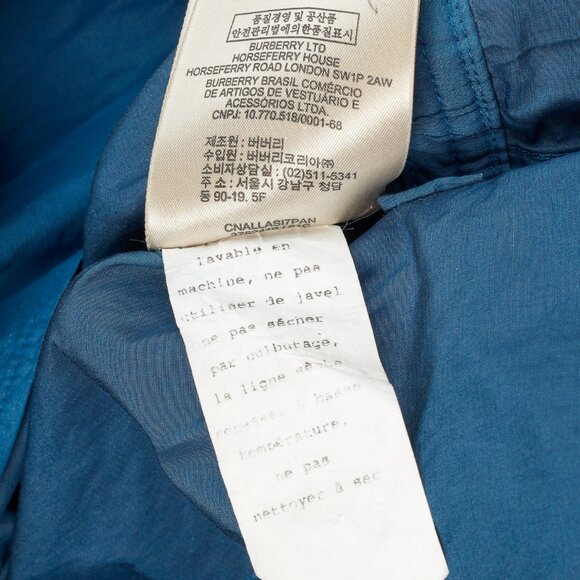 품질경영 및 공산품
안전관리법에의한품질표시
BURBERRY LTD
HORSEFERRY HOUSE
HORSEFERRY ROAD LONDON SW1P 2AW
BURBERRY BRASIL COMÉRCIO
DE ARTIGOS DE VESTUÁRIO E
ACESSÓRIOS LTDA.
CNPJ: 10.770.518/0001-68
제조원 : 버버리
수입원 : 버버리코리아㈜
소비자상담실 : (02)511-5341
주 소 : 서울시 강남구 청담
동 90-19. 5F
CNALLASI7PAN
lavable en
machine, ne pas
utiliser de javel
ne pas sécher
par culbutage,
la ligne sèche
repasser à basse
température.
ne pas
nettoyer à sec